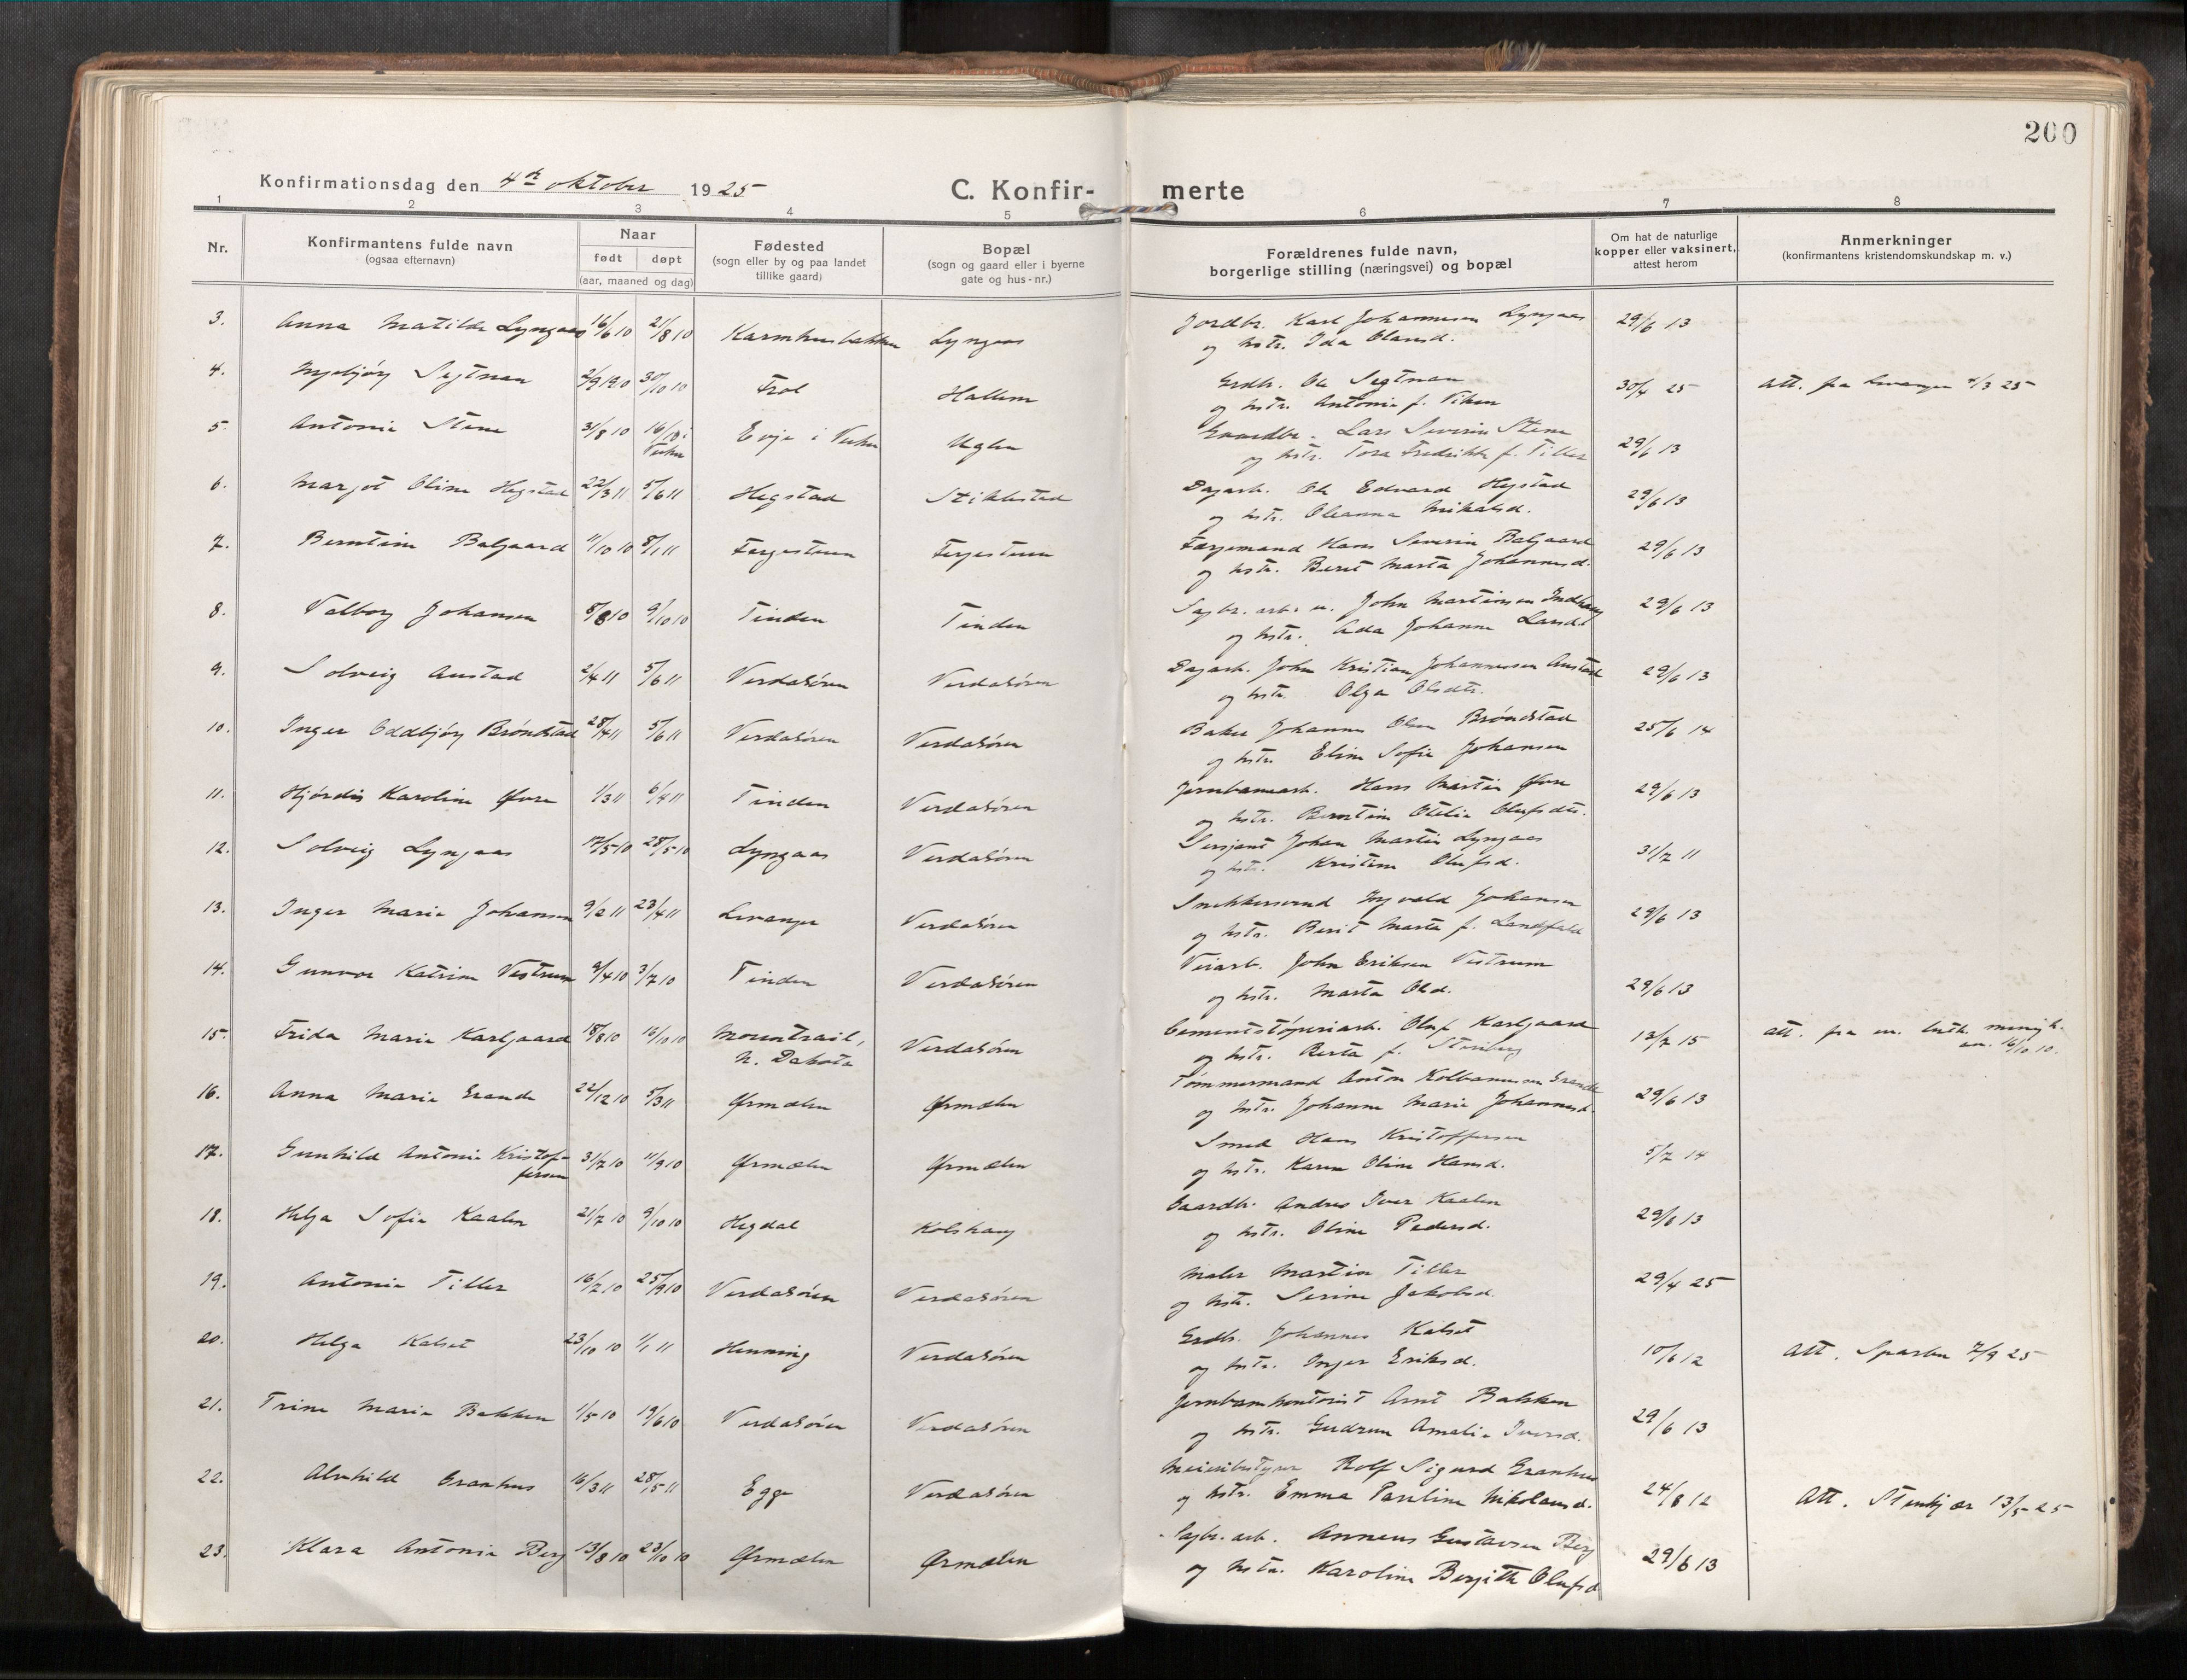 200
Konfirmationsdag den 4de oktober 1925
C. Konfirmerte
1 2 3 4 5 6 7 8
Nr.
Konfirmantens fulde navn
(ogsaa efternavn)
Naar
født døpt
(aar, maaned og dag)
Fødested
(sogn eller by og paa landet
tillike gaard)
Bopæl
(sogn og gaard eller i byerne
gate og hus-nr.)
Forældrenes fulde navn,
borgerlige stilling (næringsvei) og bopæl
Om hat de naturlige
kopper eller vaksinert,
attest herom
Anmerkninger
(konfirmantens kristendomskundskap m. v.)
3. Anna Matilde Lyngaas 16/6 10 21/8 10 Karmhusbakken Lyngaas Jordbr. Karl Johannesen Lyngaas 29/6 13
og hstr. Ida Olausd.
4. Ingebjørg Segtnan 2/9 1910 30/10 10 Frol Hallem Grdbr. Ole Segtnan 30/4 25 Att. fra Levanger
og hstr. Antonie f. Viken
5. Antonie Stene 31/8 10 Evje i Uglen Gaardbr. Lars Severin Stene 29/6 13
og hstr. Tora Fredrikke f. Tiller
6. Margot Oline Hegstad 22/3 11 5/6 11 Hegstad Stiklestad Dagarb. Ole Edvard Hegstad 29/6 13
og hstr. Oleanna Mikalsd.
7. Berntine Balgaard 11/10 10 8/1 11 Færgestuen Fergestuen Færgemand Hans Severin Balgaard 29/6 13
og hstr. Beret Marta Johannesd.
8. Valborg Johansen 5/8 10 9/10 10 Tinden Tinden Sagbr. arb. John Martinsen Indhaug 29/6 13
og hstr. Ada Johanne Larsd.
9. Solveig Austad 2/4 11 5/6 11 Verdalsøren Verdalsøren Dagarb. John Kristian Johannessen Austad 29/6 13
og hstr. Olga Olsdtr.
10. Inger Oddbjørg Brøndstad 28/4 11 5/6 11 Verdalsøren Verdalsøren Baker Johannes Olsen Brøndstad 25/6 14
og hstr. Eline Sofie Johansen
11. Hjørdis Karoline Øvre 1/3 11 6/4 11 Tinden Verdalsøren Jernbanearb. Hans Martin Øvre 29/6 13
og hstr. Berntine Otelie Olufsdtr.
12. Solveig Lyngaas 17/5 10 28/5 10 Lyngaas Verdalsøren Sersjant Johan Martin Lyngaas 31/7 11
og hstr. Kristine Olufsd.
13. Inger Marie Johansen 9/2 11 23/4 11 Levanger Verdalsøren Snekkersvend Ingvald Johansen 29/6 13
og hstr. Berit Marta f. Landfald
14. Gunvor Katrine Vestrum 9/4 10 3/7 10 Tinden Verdalsøren Veiarb. John Eriksen Vestrum 29/6 13
og hstr. Marta Olsd.
15. Frida Marie Karlgaard 18/8 10 16/10 10 Mountrail, Verdalsøren Cementstøperiarb. Oluf Karlgaard 13/7 15 Att. fra en luth. menigh.
N. Dakota og hstr. Berta f. 16/10 10.
16. Anna Marie Grande 22/12 10 5/3 11 Ørmelen Ørmelen Tømmermand Anton Kolbanussen Grande 29/6 13
og hstr. Johanne Marie Johannesd.
17. Gunhild Antonie Kristof- 31/7 10 11/9 10 Ørmelen Ørmelen Smed Hans Kristoffersen 5/7 14
fersen og hstr. Karen Oline Hansd.
18. Helga Sofie Kaalen 21/7 10 9/10 10 Hegdal Kolshaug Gaardbr. Andres Iver Kaalen 29/6 13
og hstr. Oline Pedersd.
19. Antonie Tiller 16/7 10 25/9 10 Verdalsøren Verdalsøren Maler Martin Tiller 29/4 25
og hstr. Serine Jakobsd.
20. Helga Kalset 23/10 10 1/1 11 Henning Verdalsøren Grdbr. Johannes Kalset 10/6 12 Att. Sparbu 7/9 25
og hstr. Inger Eriksd.
21. Trine Marie Bakken 1/5 10 19/6 10 Verdalsøren Verdalsøren Jernbanekontorist Arnt Bakken 29/6 13
og hstr. Gudrun Amalie Iversd.
22. Alvhild Granhus 16/3 11 28/5 11 Egge Verdalsøren Meieribestyrer Rolf Sigurd Granhus 24/8 12 Att. Stenkjær 13/5 25
og hstr. Emma Pauline Nikolausd.
23. Klara Antonie Berg 13/8 10 23/10 10 Ørmelen Ørmelen Sagbr. arb. Annæus Gustavsen Berg 29/6 13
og hstr. Karoline Bergitte Olufsd.